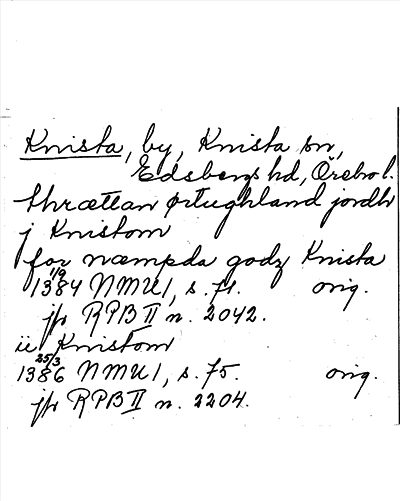 Knista, by, Knista sn,
Edsbergs hd, Örebro l.
thrættan ørtughland jordh
j Knistom
for næmpda godz Knista
1/9 1384 NMU 1, s. 71. orig.
jfr RPB II n. 2042.
ii Knistom
25/3 1386 NMU 1, s. 75. orig.
jfr RPB II n. 2204.